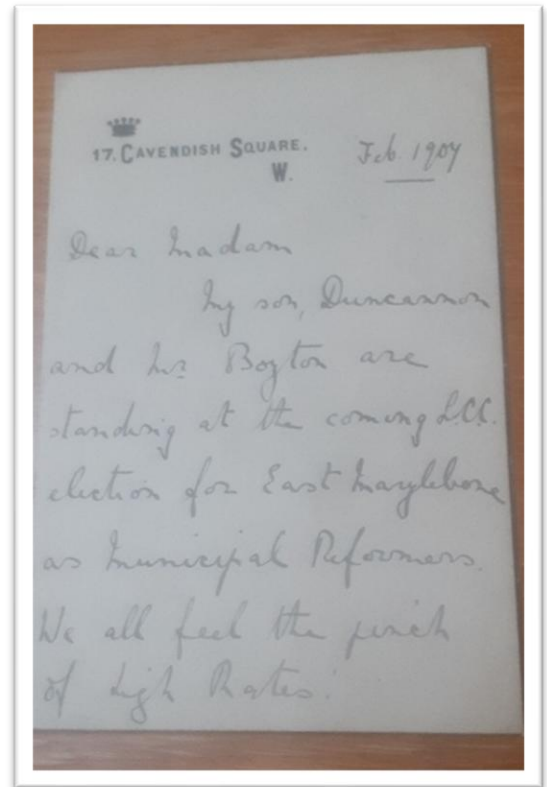 17. CAVENDISH SQUARE.
W.
Feb. 1907
Dear Madam
My son, Duncannon
and Mr Boyton are
standing at the coming L.C.C.
election for East Marylebone
as Municipal Reformers.
We all feel the pinch
of high Rates.